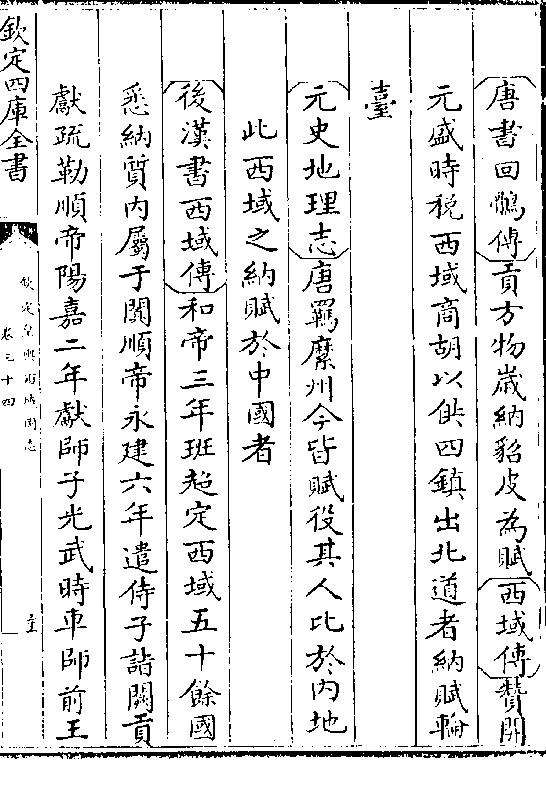 唐書回鶻傳貢方物歲納貂皮為賦西域傳贊開
元盛時稅西域商胡以供四鎮出北道者納賦輪
臺
元史地理志唐羈縻州今皆賦役其人比於內地
此西域之納賦於中國者
後漢書西域傳和帝三年班超定西域五十餘國
悉納質内屬于闐順帝永建六年遣侍子詣闕貢
獻疏勒順帝陽嘉二年獻師子光武時車師前王
欽定四庫全書
欽定皇輿西域圖志
卷三十四